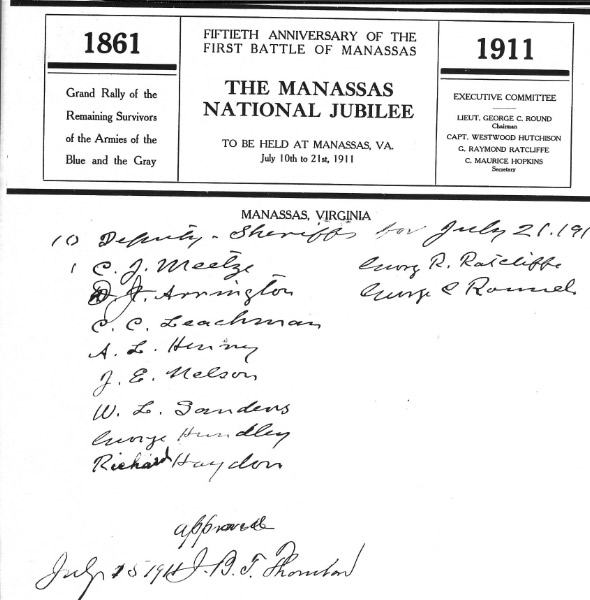 1861
Grand Rally of the
Remaining Survivors
of the Armies of the
Blue and the Gray
FIFTIETH ANNIVERSARY OF THE
FIRST BATTLE OF MANASSAS
THE MANASSAS
NATIONAL JUBILEE
TO BE HELD AT MANASSAS, VA.
July 10th to 21st, 1911
1911
EXECUTIVE COMMITTEE
LIEUT. GEORGE C. ROUND
Chairman
CAPT. WESTWOOD HUTCHISON
G. RAYMOND RATCLIFFE
C. MAURICE HOPKINS
Secretary
MANASSAS, VIRGINIA
10 Deputy-Sheriffs for July 21. 191
1 C. J. Meetze
Arrington
C. C. Leachman
A. L. Henry
J. E. Nelson
W. L. Sanders
George Hundley
Richard Haydon
George R. Ratcliffe
George C Round
approved
July 15 1911 J. B. T. Thornton